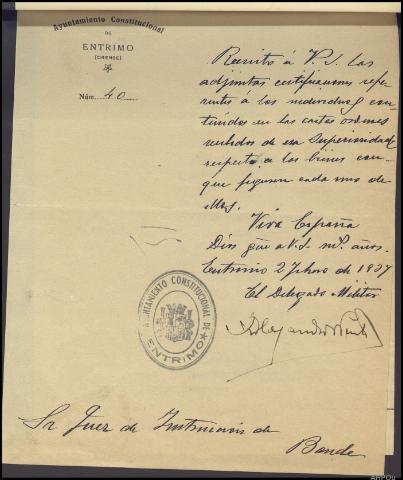 Ayuntamiento Constitucional
DE
ENTRIMO
(ORENSE)
Núm. 40
Remito á V.S. las
adjuntas certificaciones refe-
rentes á los individuos con-
tenidos en las cartas ordenes
recibidas de esa Superioridad
respecto a los bienes con
que figuran cada uno de
ellos.
Viva España
Dios gue a V.S. ms. años.
Entrimo 2 de 1937
El Delegado Militar
AYUNTAMIENTO CONSTITUCIONAL DE
ENTRIMO
Sr Juez de Instrucción de
Bande
AHPOu